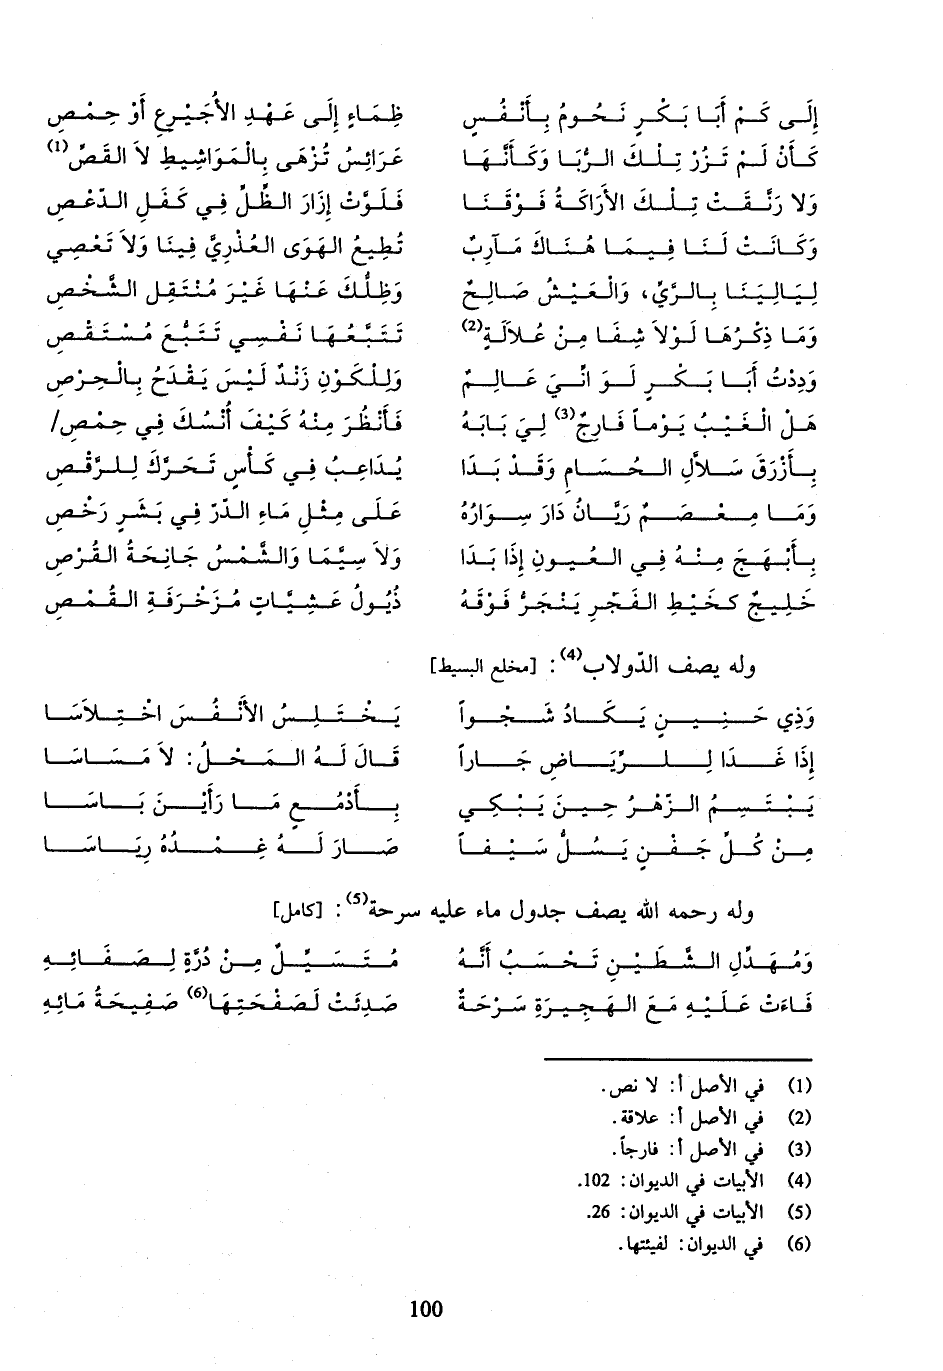 إِلَى كَمْ أَبَا بَكْرٍ نَحُومُ بِأَنْفُسٍ ظِمَاءٍ إِلَى عَهْدِ الأُجَيْرِعِ أَوْ حِمْصِ
كَأَنْ لَمْ نَزُرْ تِلْكَ الرُّبَا وَكَأَنَّهَا عَرَائِسُ تُزْهَى بِالْمَوَاشِيطِ لاَ القَصِّ (1)
وَلاَ رَنَّقَتْ تِلْكَ الأَرَاكَةُ فَوْقَنَا فَلَوَّتْ إِزَارَ الظِّلِّ فِي كَفَلِ الدِّعْصِ
وَكَانَتْ لَنَا فِيمَا هُنَاكَ مَآرِبٌ نُطِيعُ الهَوَى العُذْرِيَّ فِينَا وَلاَ نَعْصِي
لَيَالِيَنَا بِالرَّيِّ، وَالْعَيْشُ صَالِحٌ وَظِلُّكَ عَنْهَا غَيْرَ مُنْتَقِلِ الشَّخْصِ
وَمَا ذِكْرُهَا لَوْلاَ شِفَا مِنْ عُلاَلَةٍ (2) تَتَبَّعُهَا نَفْسِي تَتَبُّعَ مُسْتَقْصِ
وَدِدْتُ أَبَا بَكْرٍ لَوِ انِّيَ عَالِمٌ وَلِلْكَوْنِ زَنْدٌ لَيْسَ يَقْدَحُ بِالْحِرْصِ
هَلِ الْغَيْبُ يَوْماً فَارِجٌ (3) لِيَ بَابَهُ فَأَنْظُرَ مِنْهُ كَيْفَ أُنْسُكَ فِي حِمْصِ/
بِأَزْرَقَ سَلاَّلِ الْحُسَامِ وَقَدْ بَدَا يُدَاعِبُ فِي كَأْسٍ تَحَرَّكَ لِلرَّقْصِ
وَمَا مِعْصَمٌ رَيَّانُ دَارَ سِوَارُهُ عَلَى مِثْلِ مَاءِ الدُّرِّ فِي بَشَرٍ رَخْصِ
بِأَبْهَجَ مِنْهُ فِي الْعُيُونِ إِذَا بَدَا وَلاَ سِيَّمَا وَالشَّمْسُ جَانِحَةُ القُرْصِ
خَلِيجٌ كَخَيْطِ الفَجْرِ يَنْجَرُّ فَوْقَهُ ذُيُولُ عَشِيَّاتٍ مُزَخْرَفَةِ القُمْصِ
وله يصف الدّولاب (4) : [مخلع البسيط]
وَذِي حَنِينٍ يَكَادُ شَجْواً يَخْتَلِسُ الأَنْفُسَ اخْتِلاَسَا
إِذَا غَدَا لِلرِّيَاضِ جَاراً قَالَ لَهُ الْمَحْلُ: لاَ مَسَاسَا
يَبْتَسِمُ الزَّهْرُ حِينَ يَبْكِي بِأَدْمُعٍ مَا رَأَيْنَ بَاسَا
مِنْ كُلِّ جَفْنٍ يَسُلُّ سَيْفاً صَارَ لَهُ غِمْدُهُ رِيَاسَا
وله رحمه الله يصف جدول ماء عليه سرحة (5) : [كامل]
وَمُهَدَّلِ الشَّطَّيْنِ تَحْسَبُ أَنَّهُ مُتَسَيِّلٌ مِنْ دُرَّةٍ لِصَفَائِهِ
فَاءَتْ عَلَيْهِ مَعَ الهَجِيرَةِ سَرْحَةٌ صَدِئَتْ لِصَفْحَتِهَا (6) صَفِيحَةُ مَائِهِ
(1) في الأصل أ: لا نص.
(2) في الأصل أ: علاقة.
(3) في الأصل أ: فارجاً.
(4) الأبيات في الديوان: 102.
(5) الأبيات في الديوان: 26.
(6) في الديوان: لفيئتها.
100